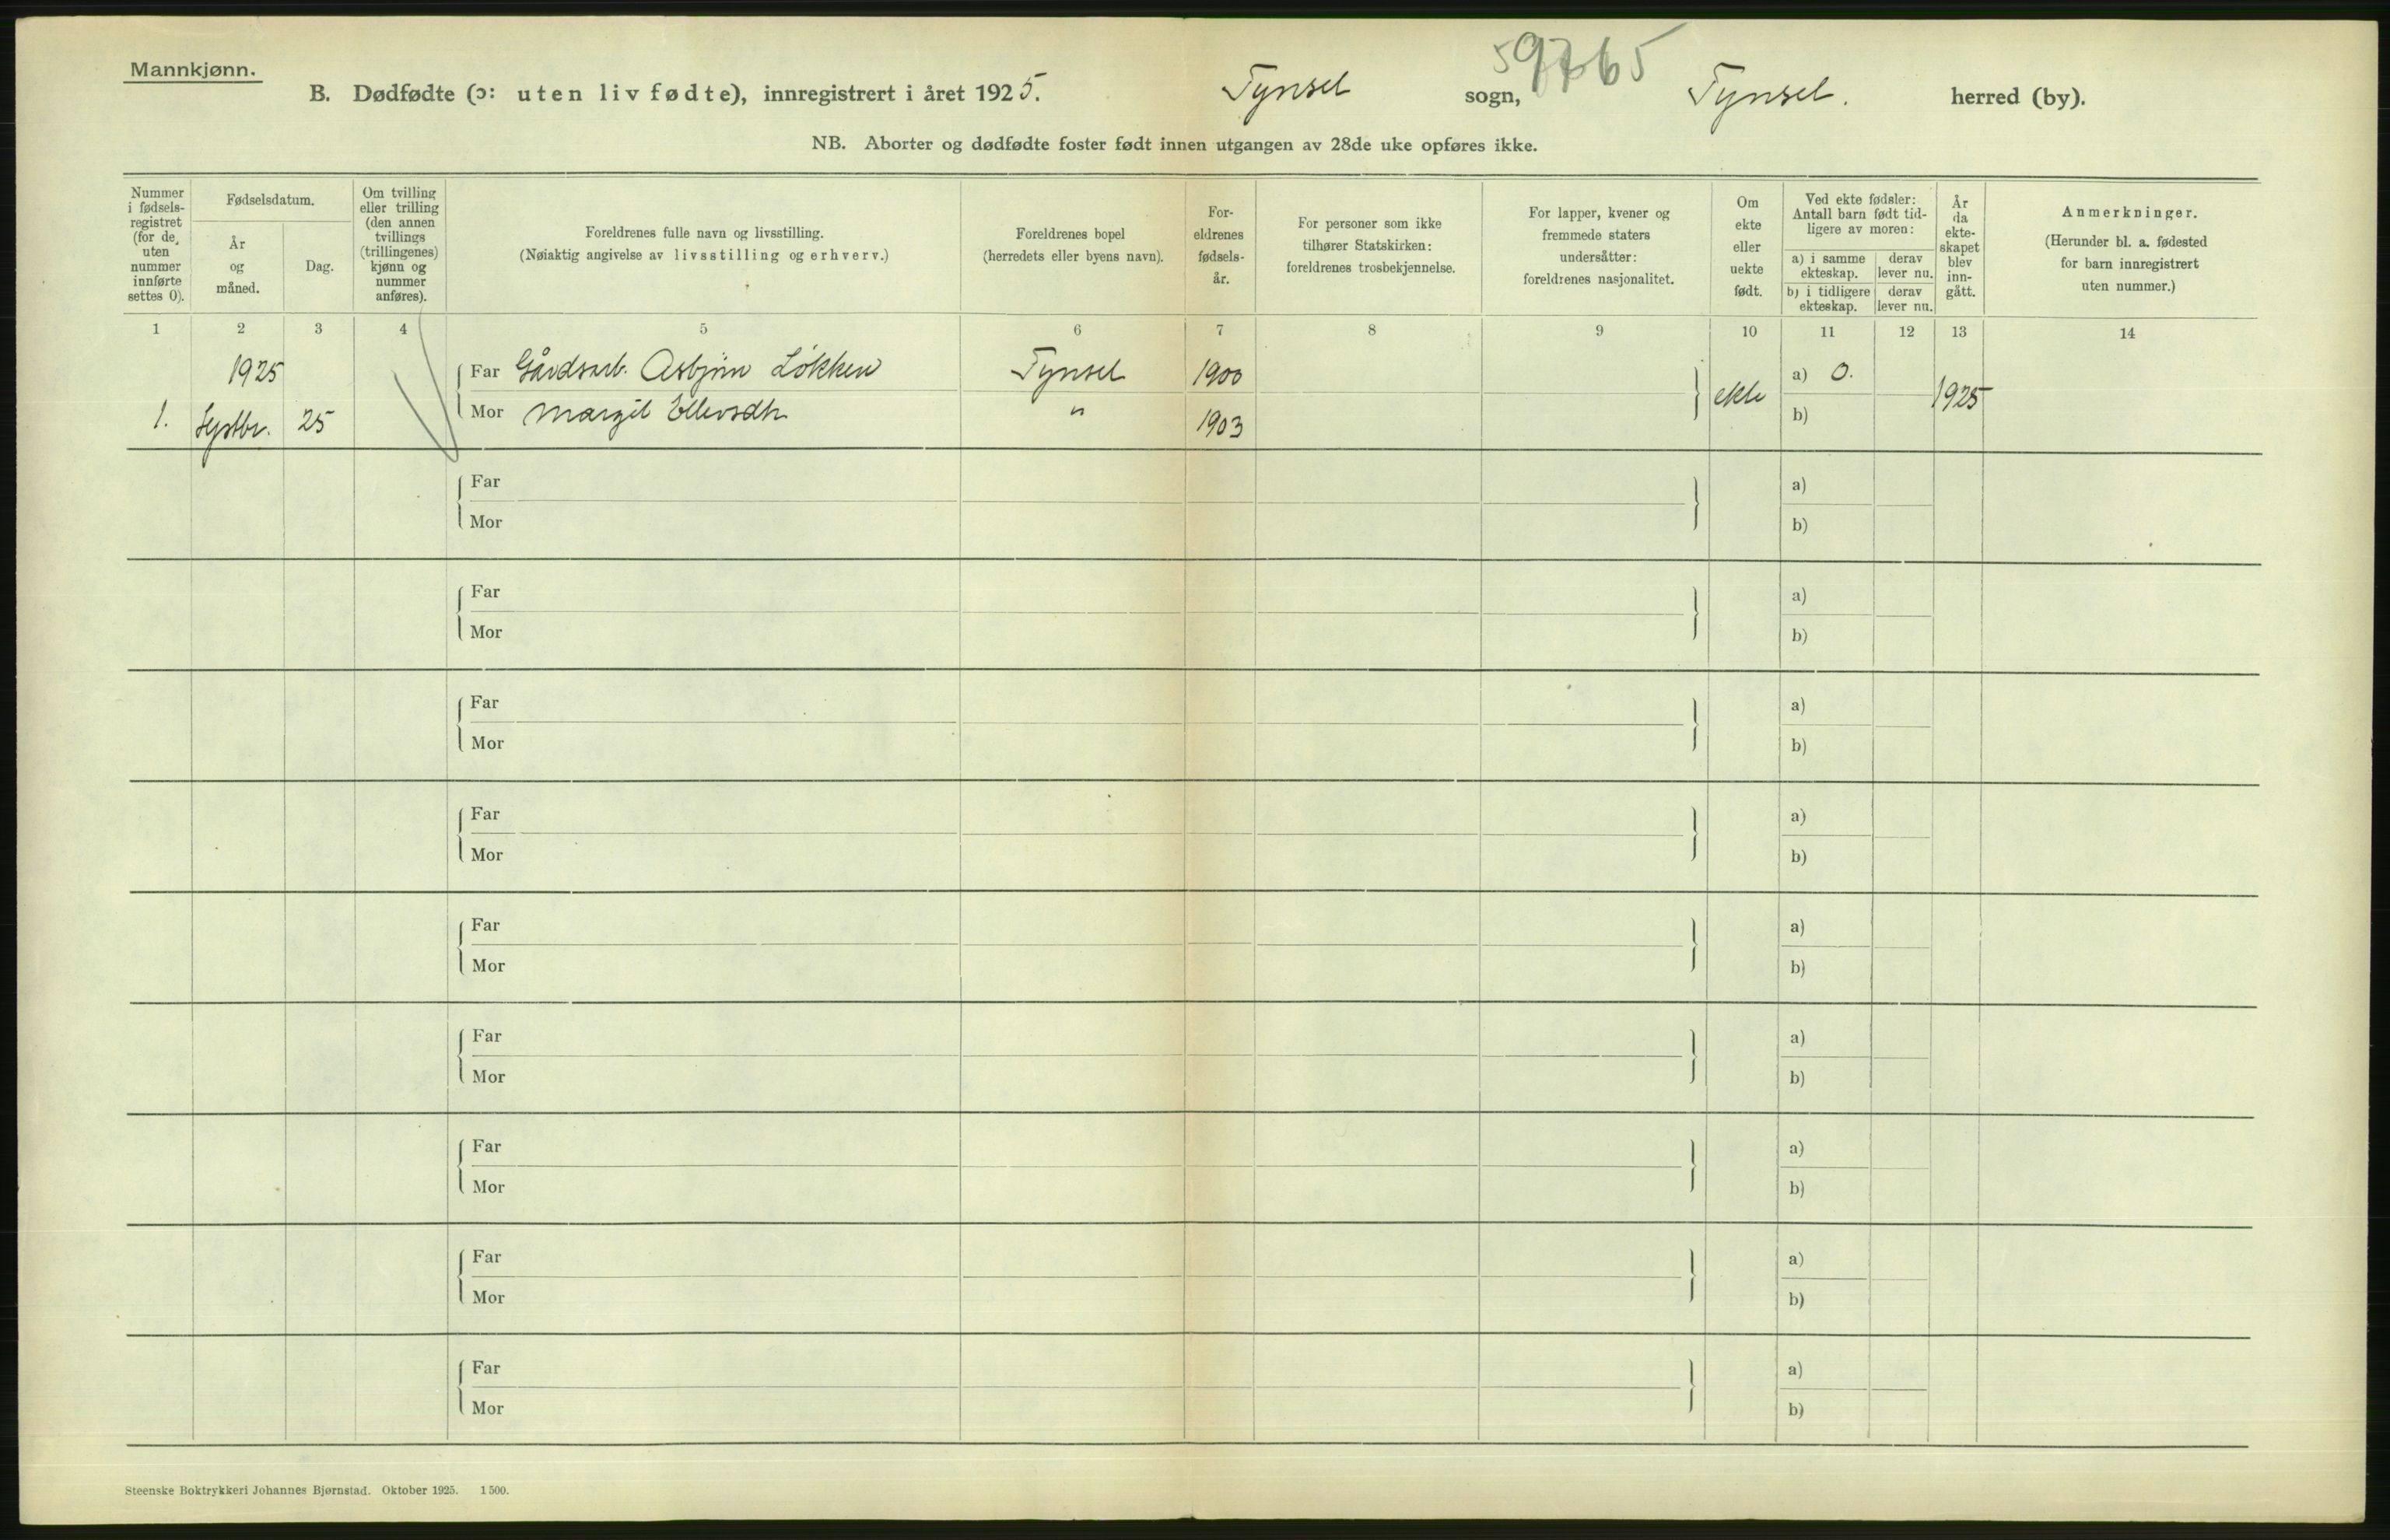 Mannkjønn.
B. Dødfødte (ɔ: uten liv fødte), innregistrert i året 1925. Tynset sogn, Tynset. herred (by).
NB. Aborter og dødfødte foster født innen utgangen av 28de uke opføres ikke.
Nummer i fødsels-registret (for de uten nummer innførte settes 0).
Fødselsdatum.
År og måned.
Dag.
Om tvilling eller trilling (den annen tvillings (trillingenes) kjønn og nummer anføres).
Foreldrenes fulle navn og livsstilling.
(Nøiaktig angivelse av livsstilling og erhverv.)
Foreldrenes bopel
(herredets eller byens navn).
For-eldrenes fødsels-år.
For personer som ikke tilhører Statskirken: foreldrenes trosbekjennelse.
For lapper, kvener og fremmede staters undersåtter: foreldrenes nasjonalitet.
Om ekte eller uekte født.
Ved ekte fødsler: Antall barn født tid-ligere av moren:
a) i samme ekteskap.
derav lever nu.
b) i tidligere ekteskap.
derav lever nu.
År da ekte-skapet blev inn-gått.
Anmerkninger.
(Herunder bl. a. fødested for barn innregistrert uten nummer.)
1 2 3 4 5 6 7 8 9 10 11 12 13 14
1925 Far Gårdsarb. Asbjørn Løkken Tynset 1900 ekte a) 0. 1925
1. Septbr. 25 Mor Margit Ellevsdtr " 1903 b)
Far a)
Mor b)
Far a)
Mor b)
Far a)
Mor b)
Far a)
Mor b)
Far a)
Mor b)
Far a)
Mor b)
Far a)
Mor b)
Far a)
Mor b)
Far a)
Mor b)
Steenske Boktrykkeri Johannes Bjørnstad. Oktober 1925. 1500.